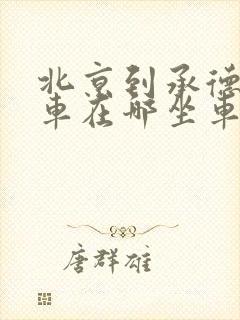 北京到承德
車在哪坐車
唐群雄